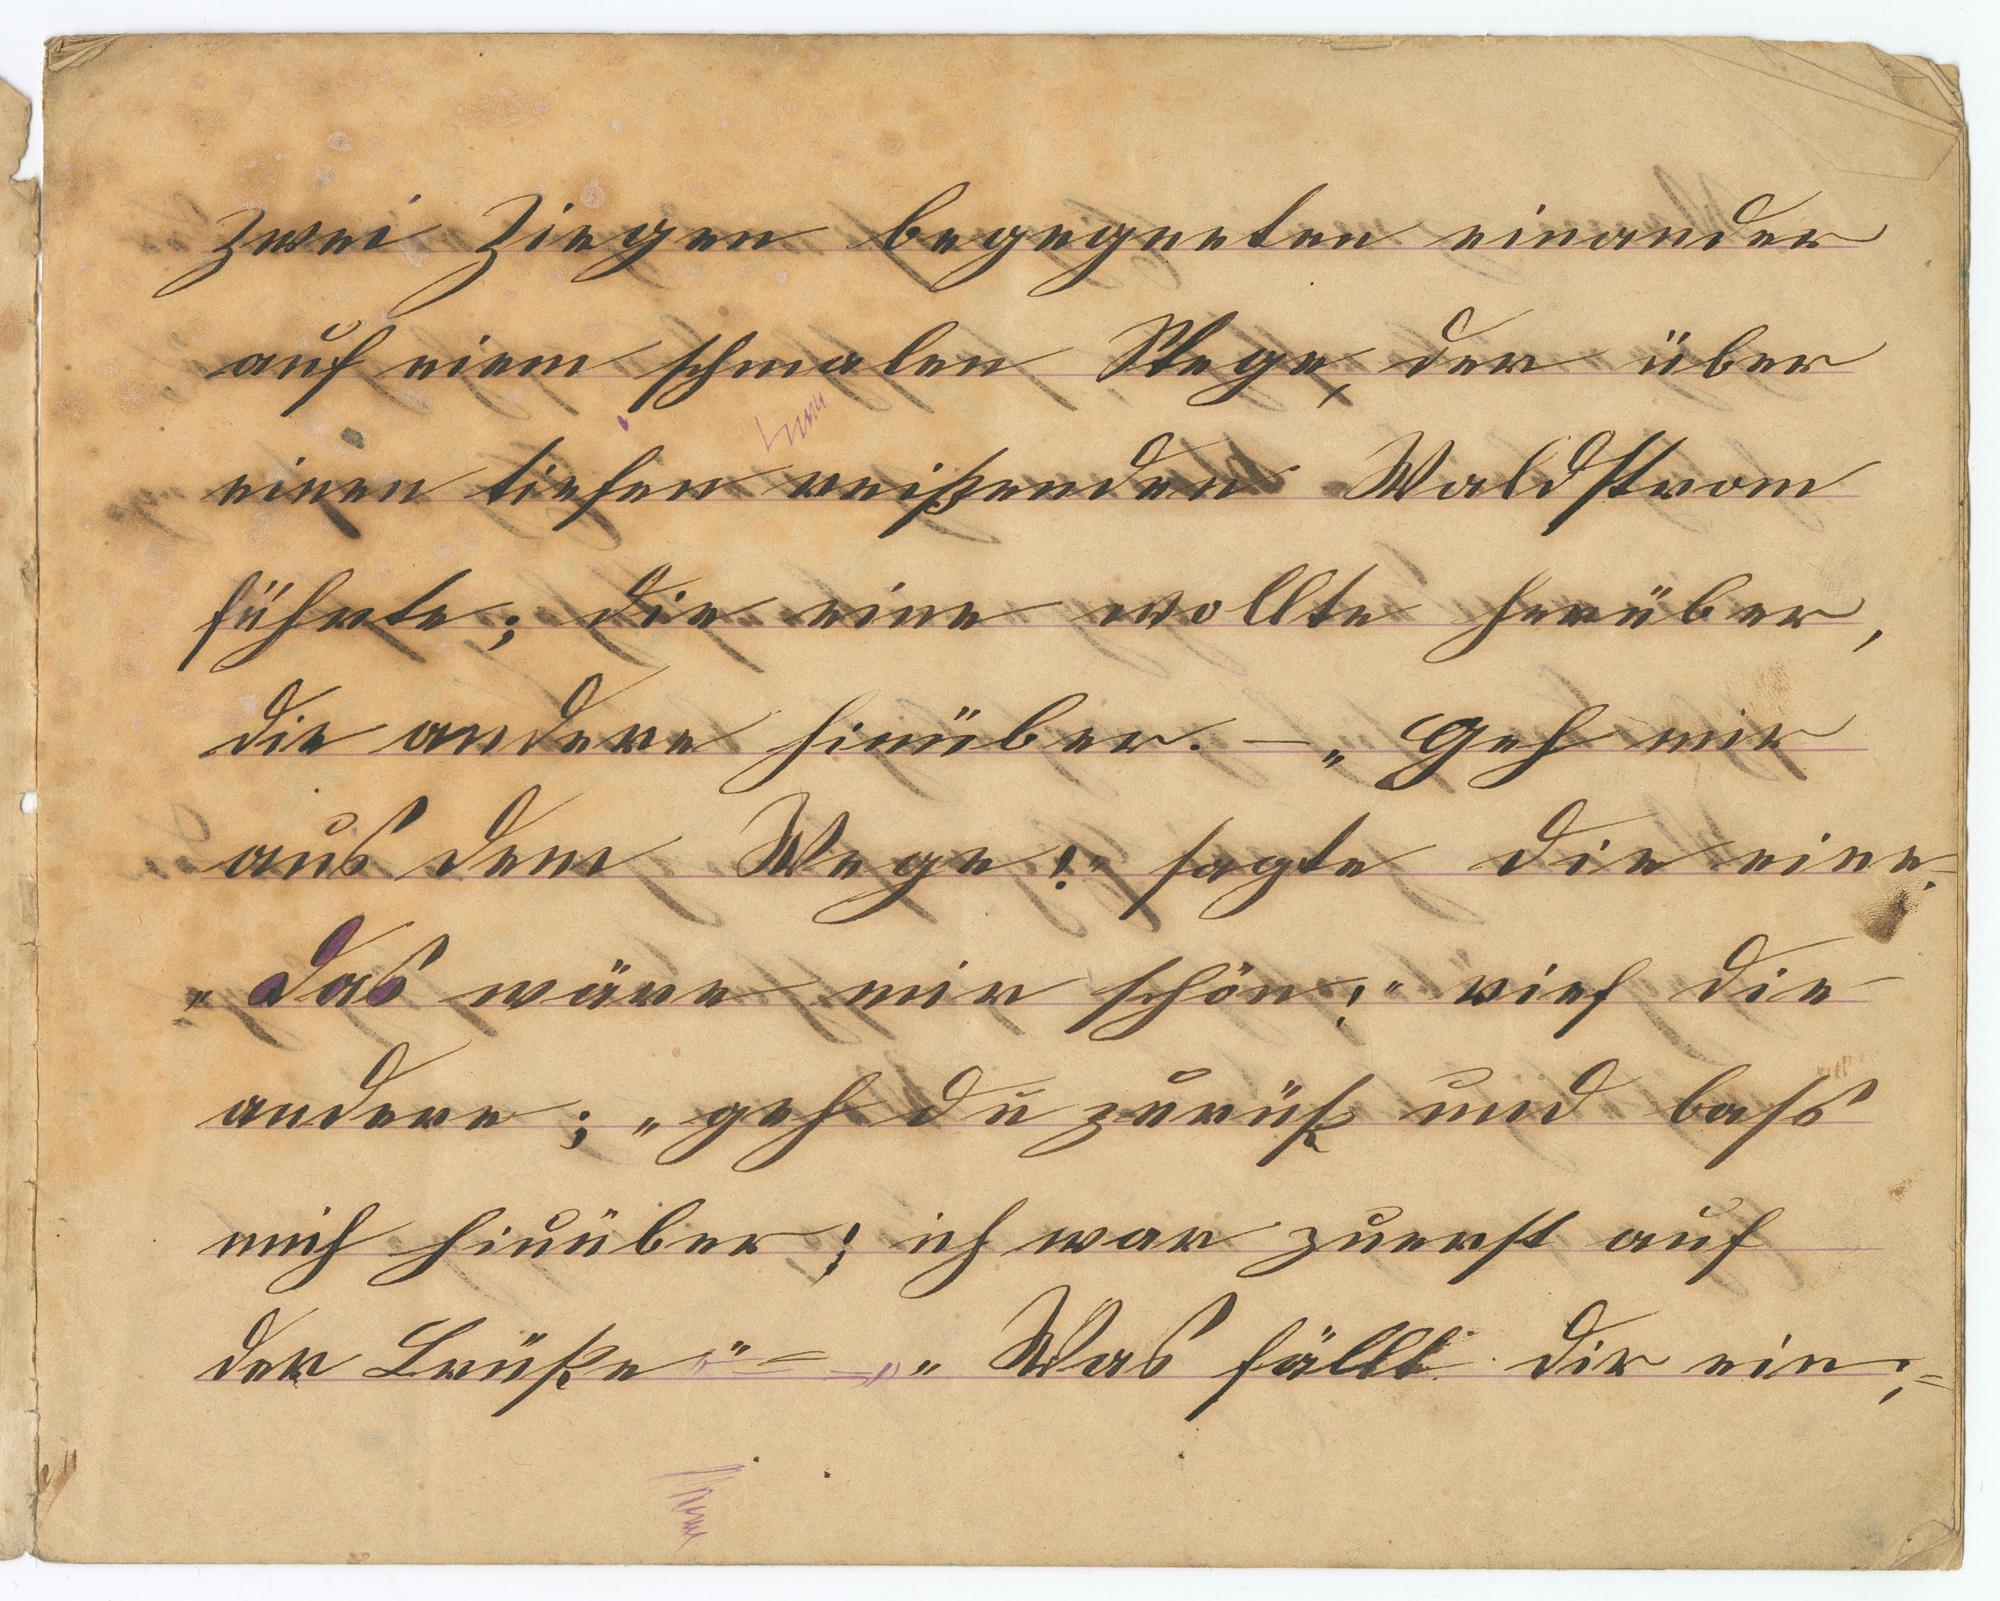 Zwei Ziegen begegneten einander
auf einem schmalen Stege, der über
einen tiefen reißenden Waldstrom
führte; die eine wollte herüber,
die andere hinüber. – „Geh mir
aus dem Wege!“ sagte die eine.
„Das wäre mir schön!“ rief die
andere; „geh du zurück und lass
mich hinüber; ich war zuerst auf
der Brücke“ – „Was fällt dir ein;